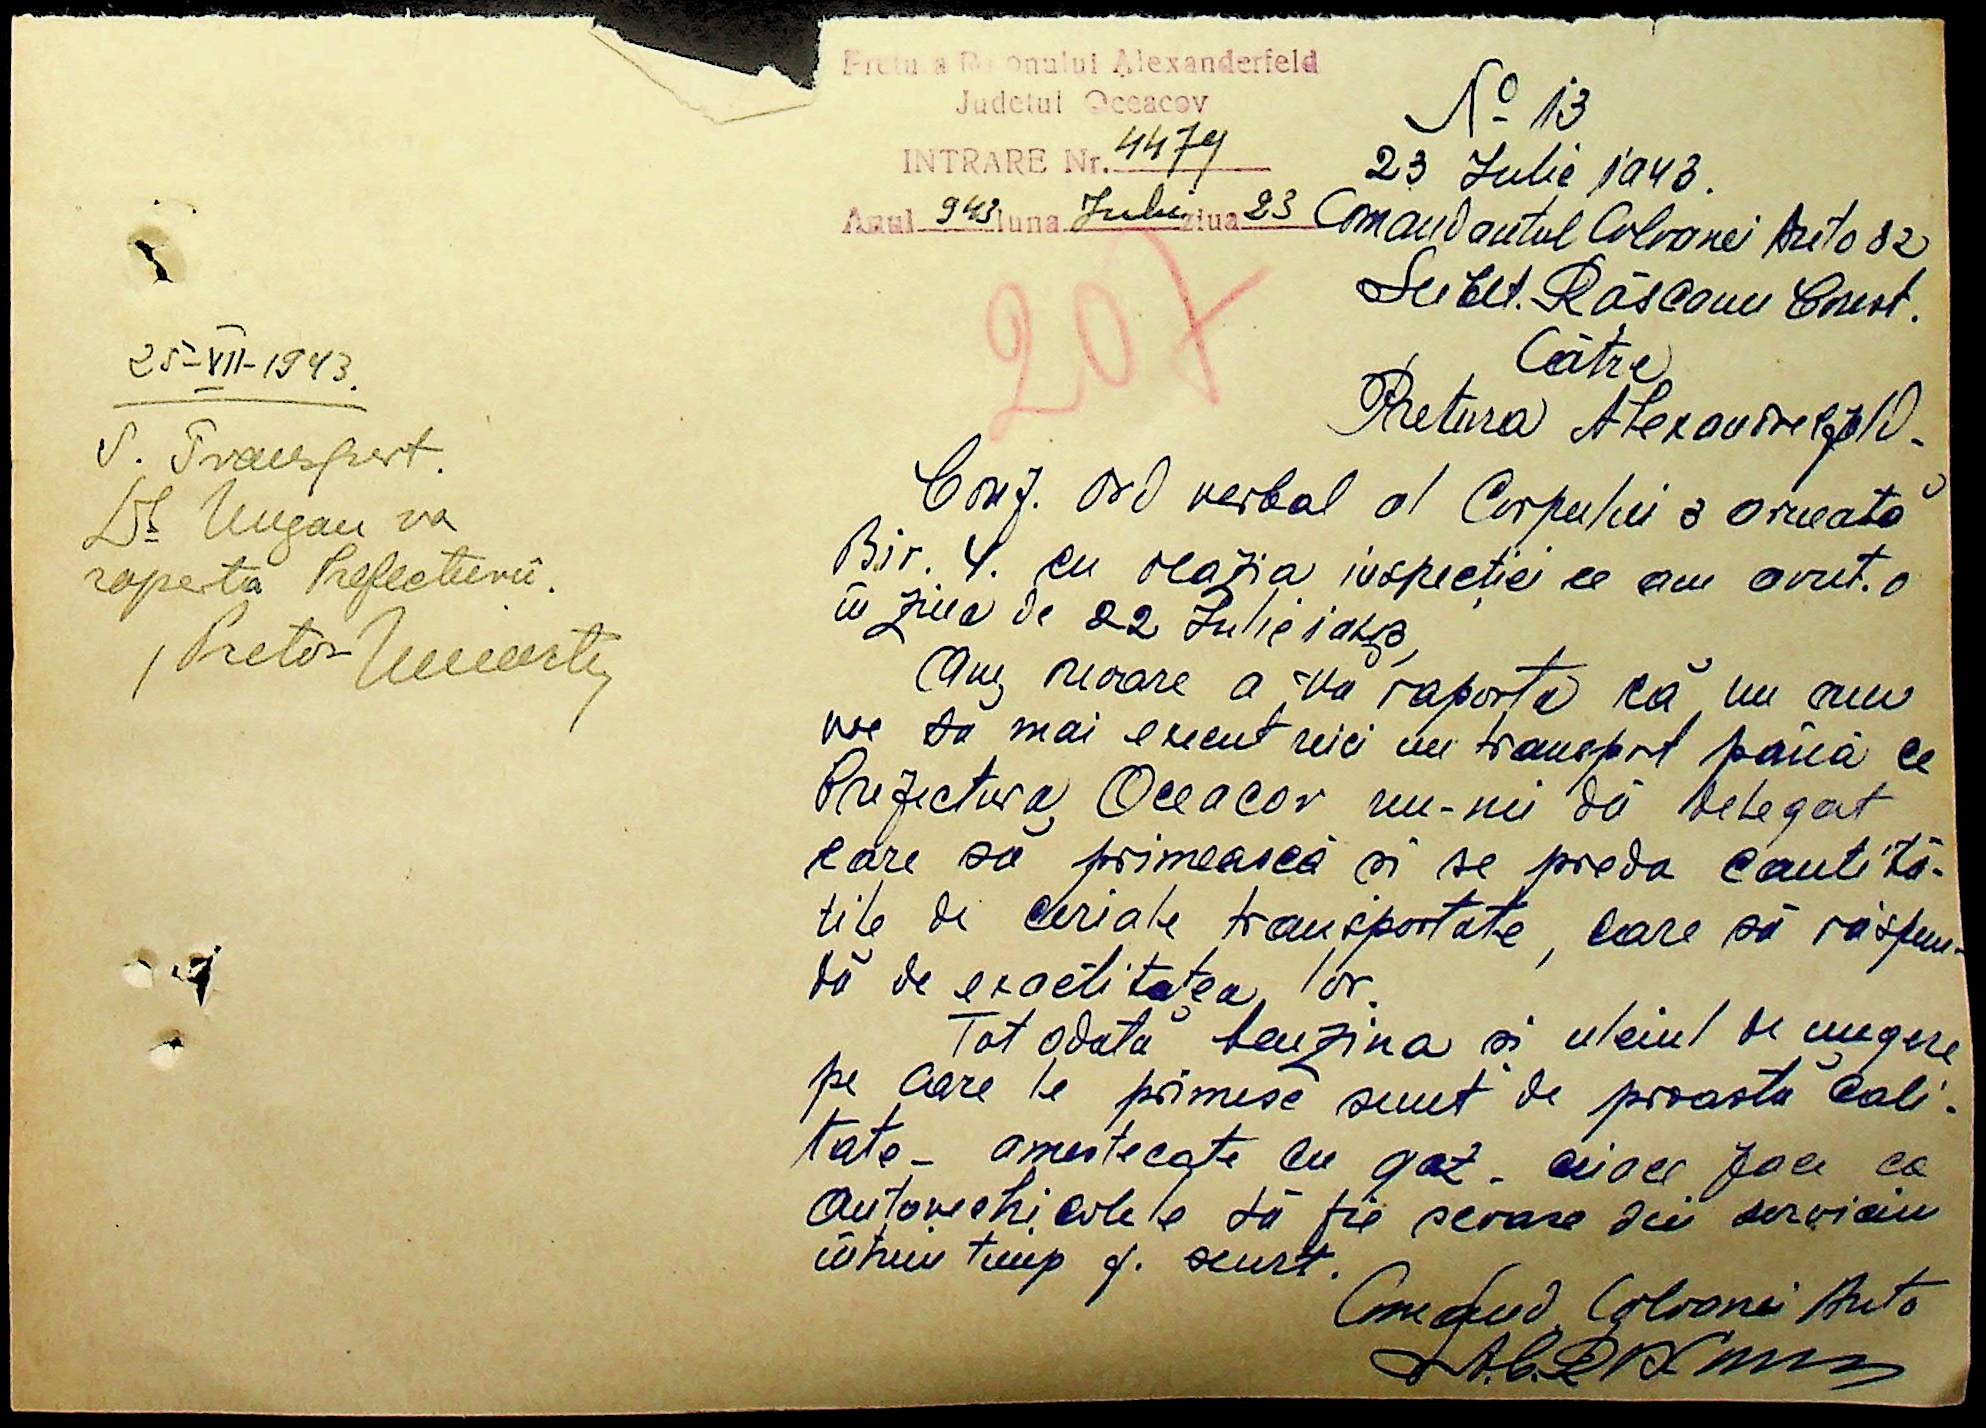 Pretura Raionului Alexanderfeld
Judetul Oceacov
INTRARE Nr. 4479
Anul 943 luna Iulie ziua 23
207
No 13
23 Iulie 1943.
Comandantul Coloanei Auto 82
Sublt. Râscanu Const.
Către
Pretura Alexanderfeld-
Conf. Ord verbal al Corpului 3 armată
Bir. 4. cu ocazia inspecției ce am avut-o
în ziua de 22 Iulie 1943,
Am onoare a vă raporta că nu am
voe să mai execut nici un transport până ce
Prefectura Oceacov nu-mi dă delegat
care să primească și se preda cantită-
tile de ceriale transportate, care să răspun-
dă de exactitatea lor.
Tot odată benzina și uleiul de ungere
pe care le primesc sunt de proastă cali-
tate - amestecate cu gaz - ceiace face ca
autovechicolele să fie scoase din serviciu
întrun timp f. scurt.
Comand. Coloanei Auto
25-VII-1943.
S. Transport.
Dl Ungan va
raporta Prefecturii.
Pretor